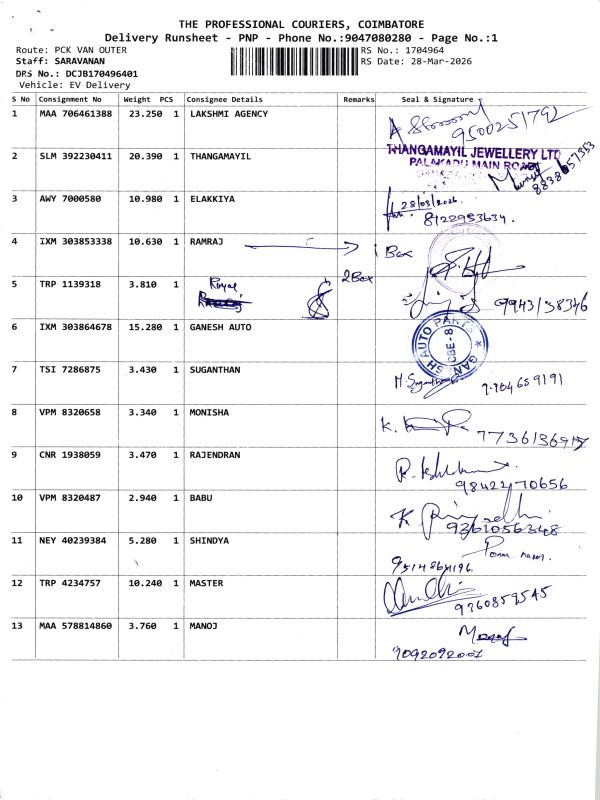 THE PROFESSIONAL COURIERS, COIMBATORE
Delivery Runsheet - PNP - Phone No.:9047080280 - Page No.:1
Route: PCK VAN OUTER
RS No.: 1704964
Staff: SARAVANAN
RS Date: 28-Mar-2026
DRS No.: DCJB170496401
Vehicle: EV Delivery
S No Consignment No Weight PCS Consignee Details Remarks Seal & Signature
1 MAA 706461388 23.250 1 LAKSHMI AGENCY
9500251792
2 SLM 392230411 20.390 1 THANGAMAYIL
THANGAMAYIL JEWELLERY LTD
PALAKADU MAIN ROAD
3 AWY 7000580 10.980 1 ELAKKIYA
28/03/2026.
8122983634.
4 IXM 303853338 10.630 1 RAMRAJ
1 Box
5 TRP 1139318 3.810 1 Royal
2Box
9943138346
6 IXM 303864678 15.280 1 GANESH AUTO
GANESH AUTO PARTS
CBE-8
7 TSI 7286875 3.430 1 SUGANTHAN
9704659191
8 VPM 8320658 3.340 1 MONISHA
9 CNR 1938059 3.470 1 RAJENDRAN
9842270656
10 VPM 8320487 2.940 1 BABU
9361056348
11 NEY 40239384 5.280 1 SHINDYA
9514864196
12 TRP 4234757 10.240 1 MASTER
9360859545
13 MAA 578814860 3.760 1 MANOJ
Manoj
9092092001